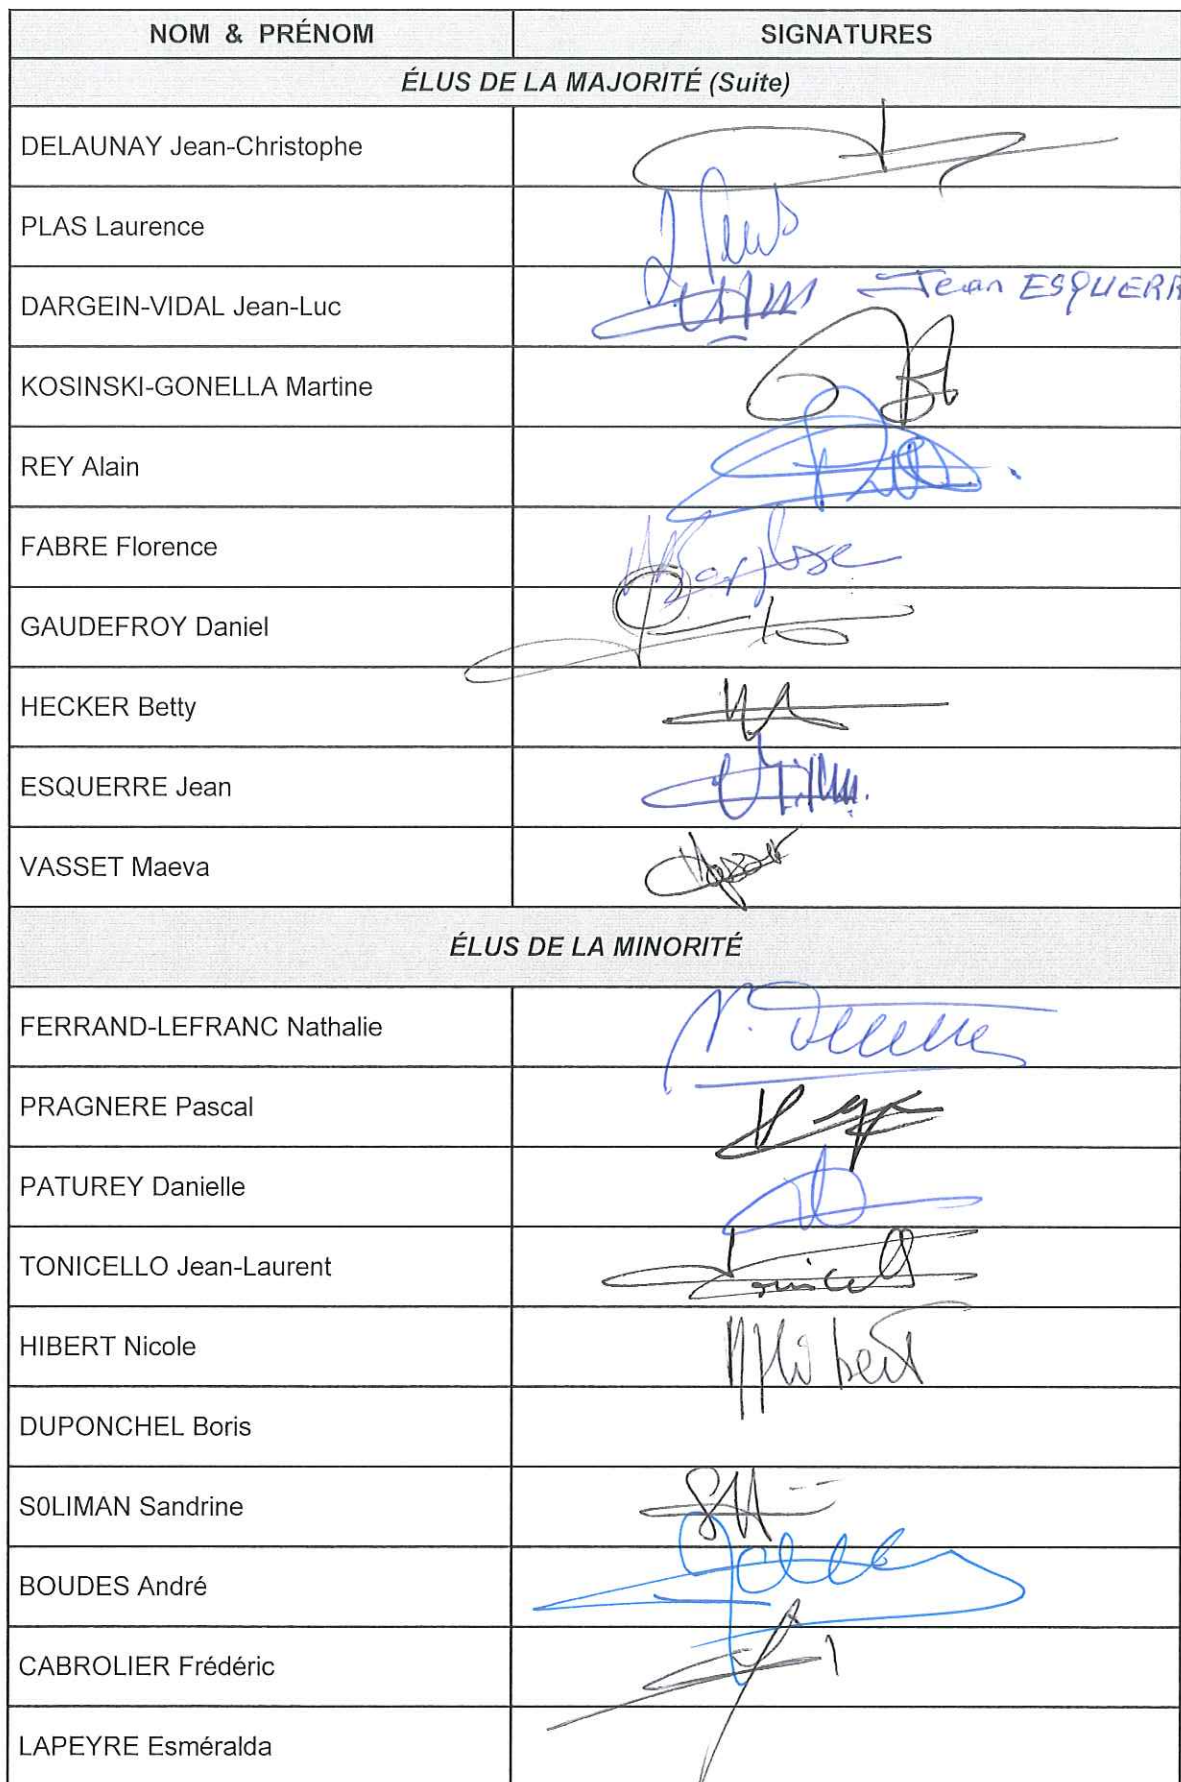 NOM & PRÉNOM SIGNATURES
ÉLUS DE LA MAJORITÉ (Suite)
DELAUNAY Jean-Christophe
PLAS Laurence
DARGEIN-VIDAL Jean-Luc Jean ESQUERR
KOSINSKI-GONELLA Martine
REY Alain
FABRE Florence
GAUDEFROY Daniel
HECKER Betty
ESQUERRE Jean
VASSET Maeva
ÉLUS DE LA MINORITÉ
FERRAND-LEFRANC Nathalie
PRAGNERE Pascal
PATUREY Danielle
TONICELLO Jean-Laurent Tonicello
HIBERT Nicole NHibert
DUPONCHEL Boris
S0LIMAN Sandrine
BOUDES André
CABROLIER Frédéric
LAPEYRE Esméralda